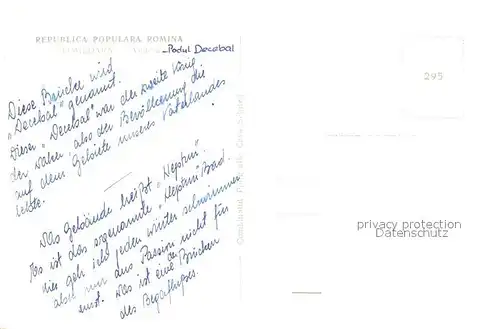 REPUBLICA POPULARA ROMINA
Podul Decebal
295
Diese Brücke wird
„Decebal" genannt.
Dieser „Decebal" war der zweite König
der Daker, also der Bevölkerung die
auf dem Gebiete unseres Vaterlandes
lebte.
Das Gebäude heißt „Neptun".
Es ist das sogenannte „Neptun" Bad.
hier geh ich jeden winter schwimmen
aber nur aus Passion nicht für
ernst. Das ist eine der Brücken
des Begaflußes.
privacy protection
Datenschutz